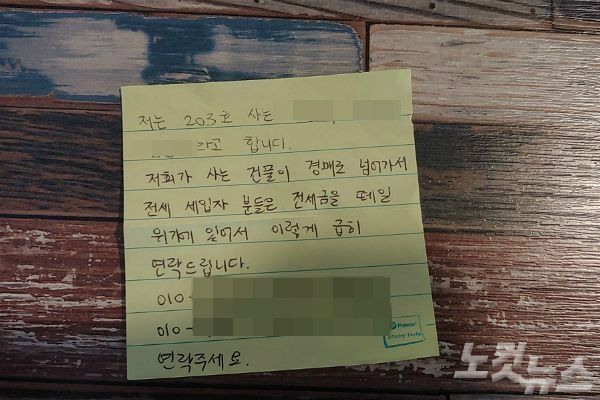 저는 203호 사는
라고 합니다.
저희가 사는 건물이 경매로 넘어가서
전세 세입자 분들은 전세금을 떼일
위기에 있어서 이렇게 급히
연락드립니다.
010-
010-
연락주세요.
Sticky Note
노컷뉴스